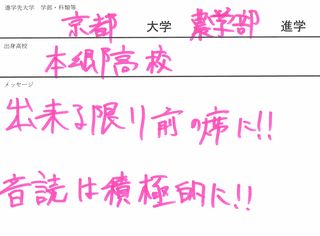 進学先大学 学部・科類等
京都 大学 農学部 進学
出身高校
本郷高校
メッセージ
出来る限り前の席に!!
音読は積極的に!!